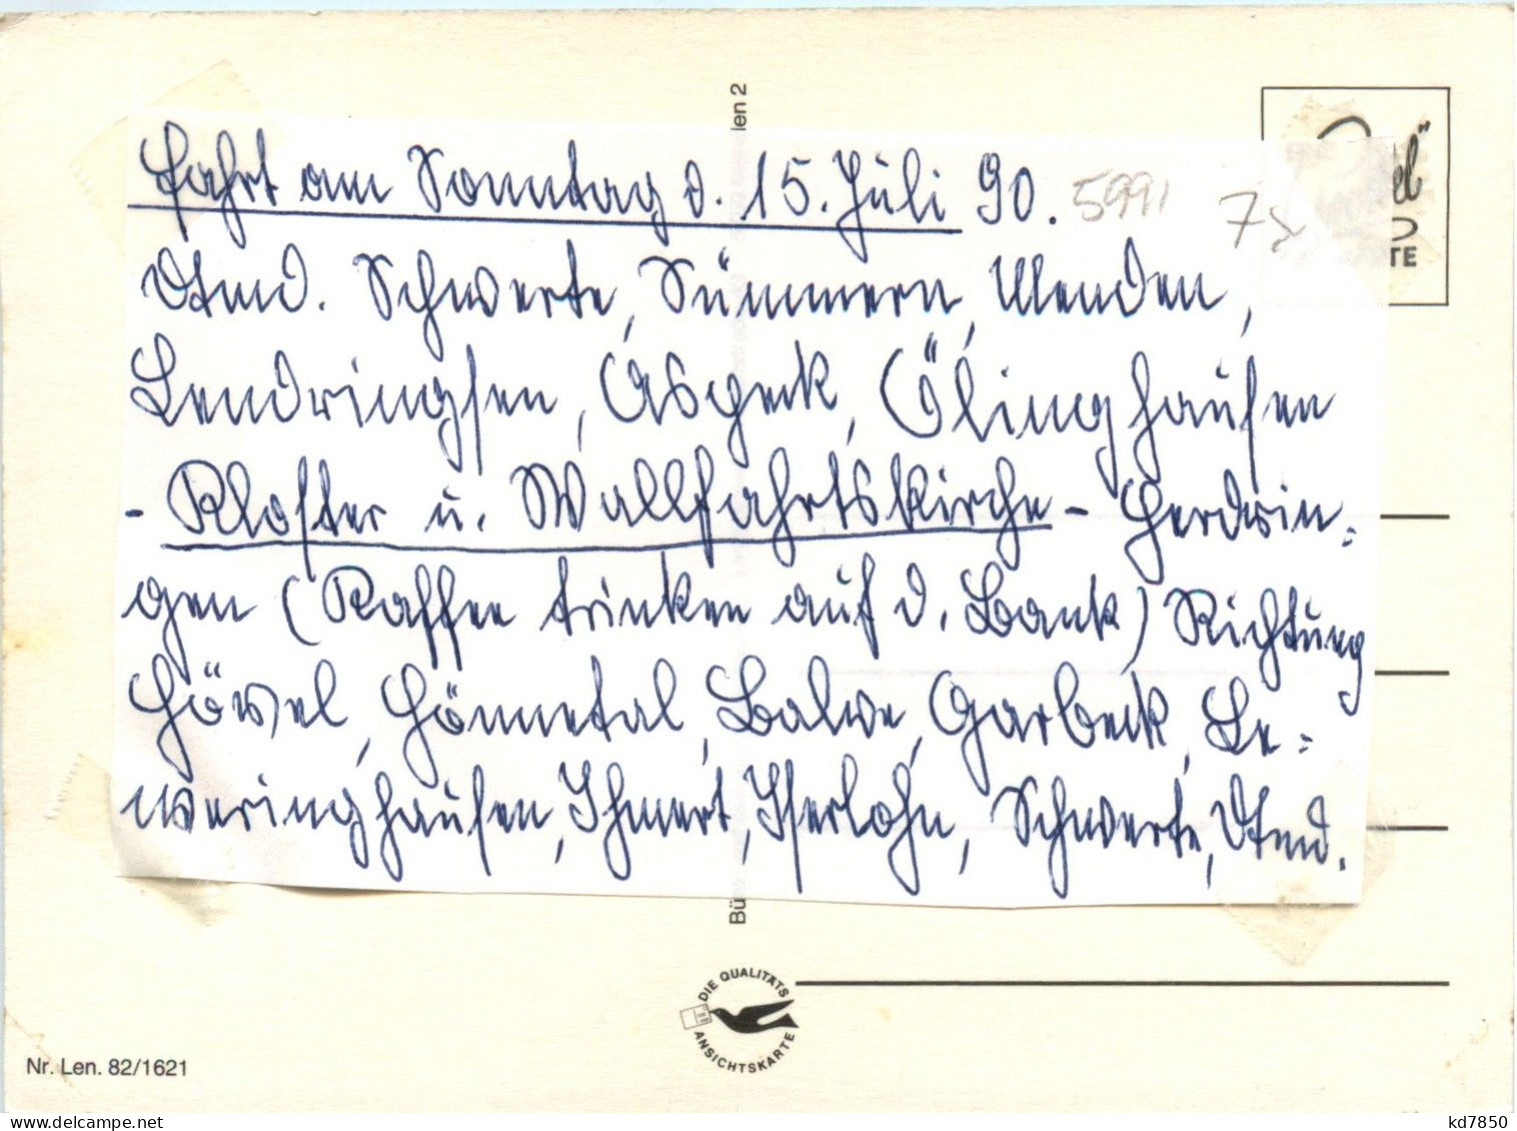 len 2
Fahrt am Sonntag d. 15. Juli 90. 5991 78
Dtmd. Schwerte, Sümmern, Menden,
Lendringsen, Asbeck, Ölinghausen
- Kloster u. Wallfahrtskirche - Herdrin=
gen (Kaffee trinken auf d. Bank) Richtung
Hövel, Hönnetal, Balve, Garbeck, Le=
weringhausen, Ihmert, Iserlohn, Schwerte, Dtmd.
Bü
TE
DIE QUALITÄTS
ANSICHTSKARTE
Nr. Len. 82/1621
www.delcampe.net
kd7850